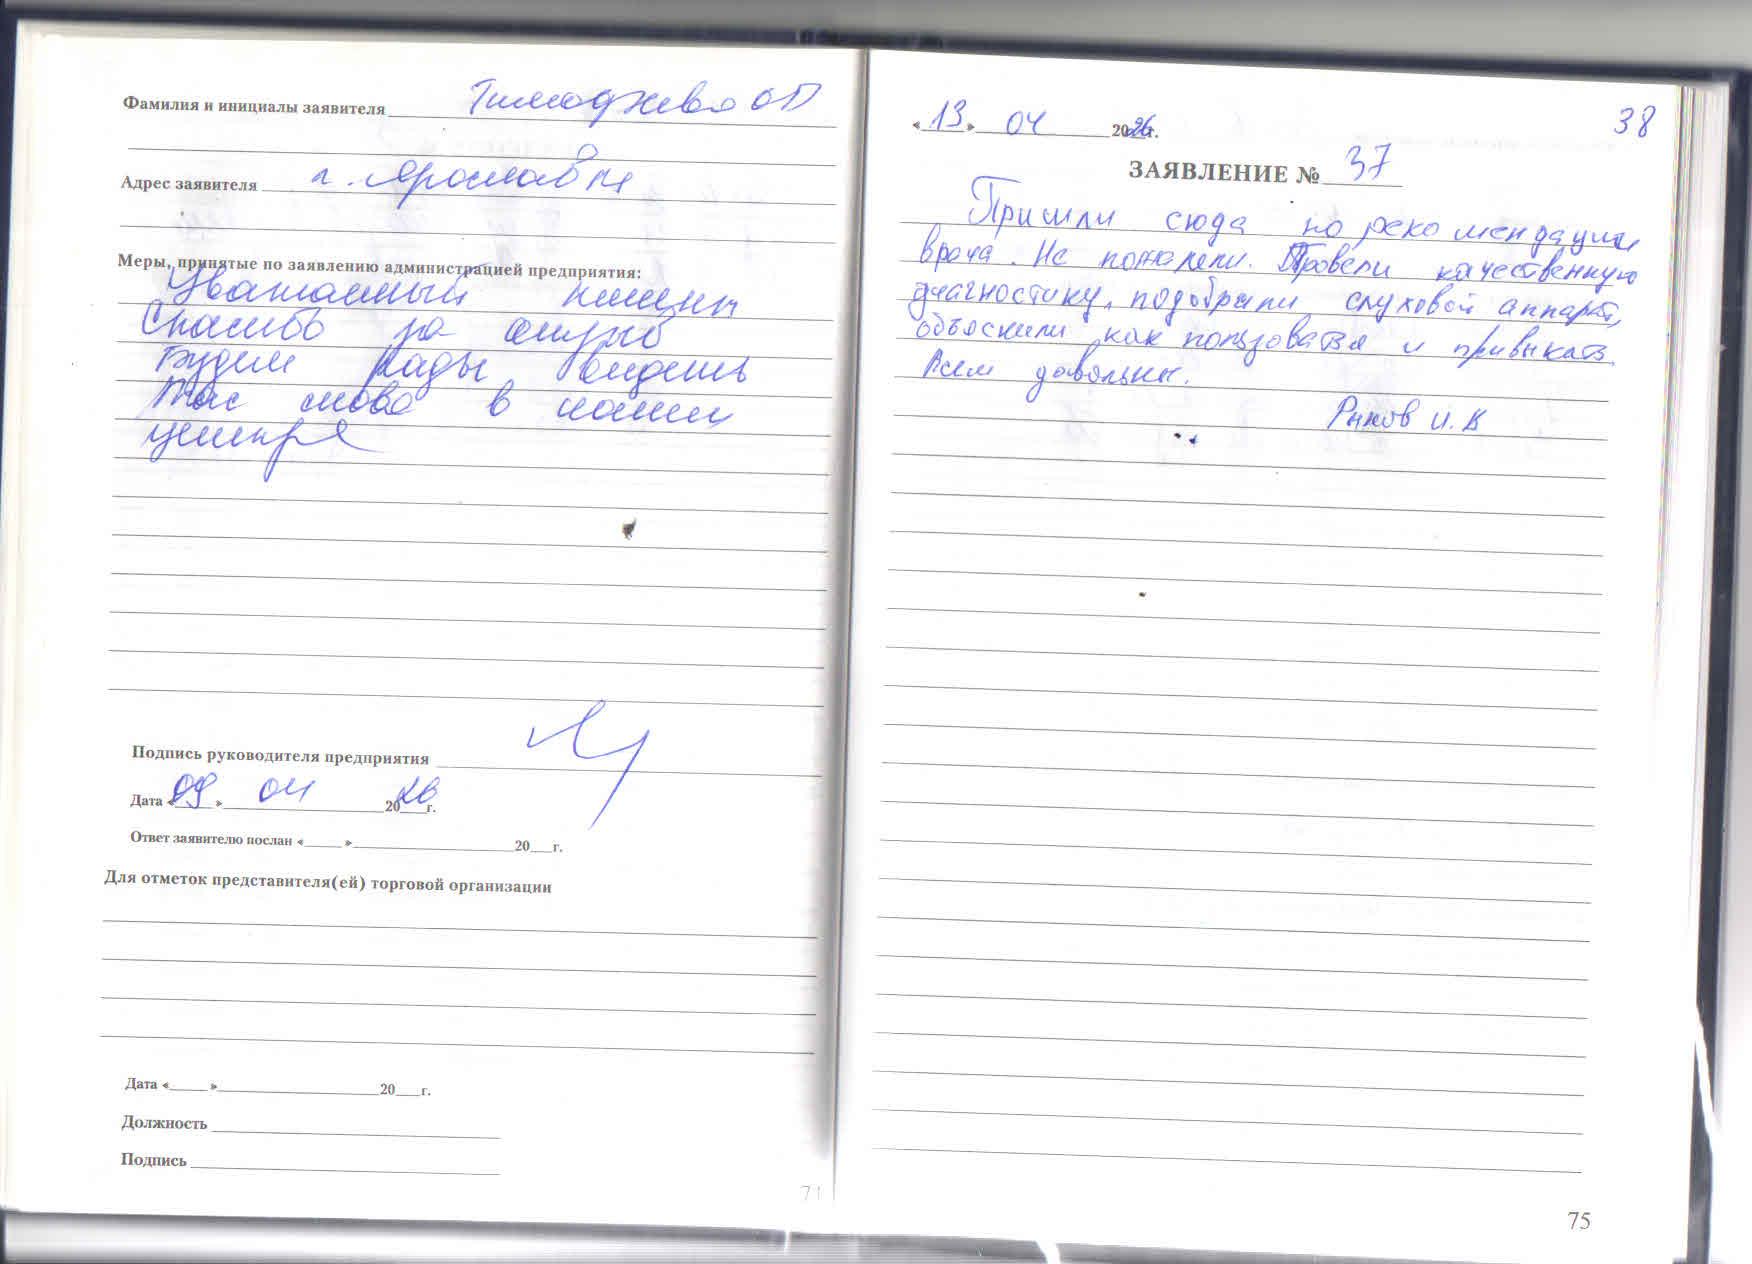 Фамилия и инициалы заявителя Тимофеева О П
Адрес заявителя г. Ярославль
Меры, принятые по заявлению администрацией предприятия:
Уважаемый
Спасибо за отзыв
Будем рады видеть
Вас снова в нашем
центре
Подпись руководителя предприятия
Дата «09» 04 2026г.
Ответ заявителю послан «____» 20__г.
Для отметок представителя(ей) торговой организации
Дата «____» 20__г.
Должность
Подпись
38
«13» 04 2026г.
ЗАЯВЛЕНИЕ № 37
Пришли сюда по рекомендации
врача. Не пожалели. Провели качественную
диагностику, подобрали слуховой аппарат,
объяснили как пользоваться и привыкать.
Всем довольны.
Рыков И. В
75